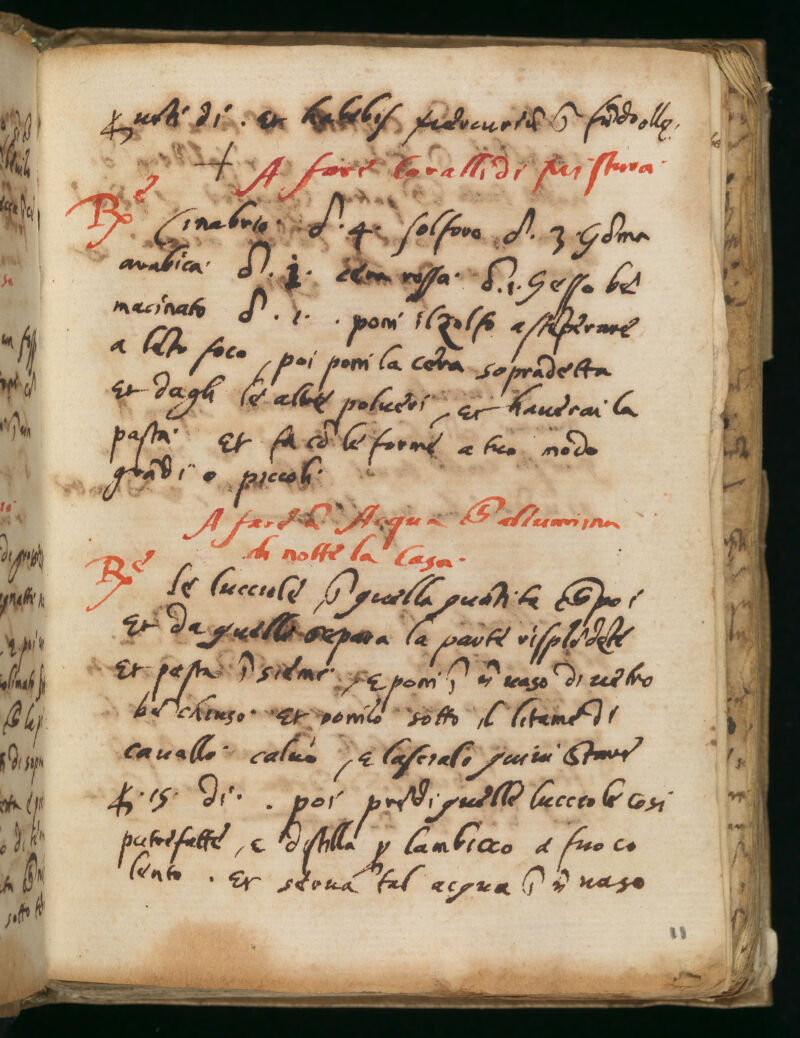 uoti di. et habebis in fundo olle.
A fare Coralli di mistura
Re Cinabrio. d. 4. solforo d. 3. Goma
arabica d. i. cera rossa. d. 1. Gesso bē
macinato d. 1. poni il zolfo a stēperare
a lēto foco, poi poni la cera sopradetta
et dagli le altre polueri, et hauerai la
pasta. et fa cō le forme a tuo modo
grādi o piccoli.
A fare Acqua allumina
di notte la Casa.
Re le lucciole quella quātita poi
et da quelle separa la parte risplēdēte
et pesta īsieme, e poni ī ū uaso di uetro
bē chiuso. et ponilo sotto il litame di
cauallo caldo, e lascialo quiui stare
15 di. poi prēdi quelle lucciole cosi
putrefatte, e distilla p lambicco a fuoco
lento. et serua tal acqua ī ū uaso
11